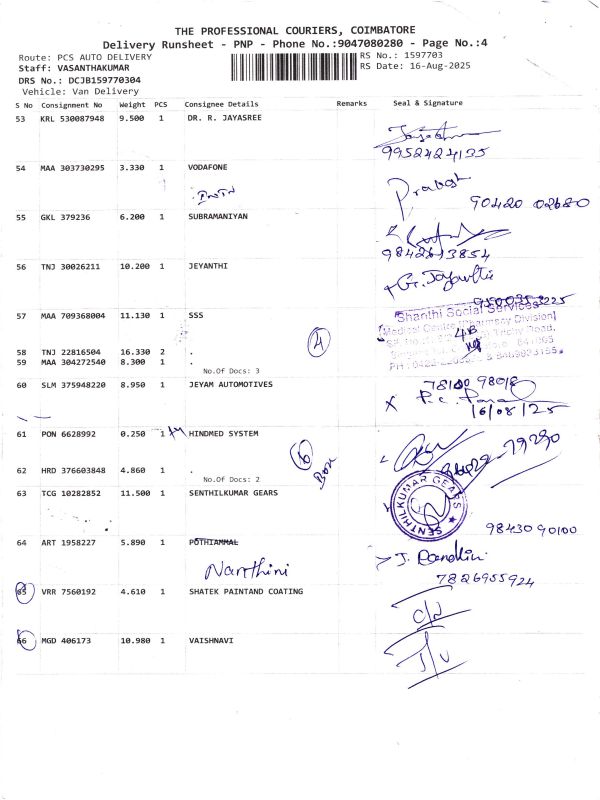 THE PROFESSIONAL COURIERS, COIMBATORE
Delivery Runsheet - PNP - Phone No.:9047080280 - Page No.:4
Route: PCS AUTO DELIVERY
RS No.: 1597703
Staff: VASANTHAKUMAR
RS Date: 16-Aug-2025
DRS No.: DCJB159770304
Vehicle: Van Delivery
S No Consignment No Weight PCS Consignee Details Remarks Seal & Signature
53 KRL 530087948 9.500 1 DR. R. JAYASREE
9952424135
54 MAA 303730295 3.330 1 VODAFONE
Prakash
90420 02680
55 GKL 379236 6.200 1 SUBRAMANIYAN
9842613854
56 TNJ 30026211 10.200 1 JEYANTHI
57 MAA 709368004 11.130 1 SSS
Shanthi Social Services
(Medical Centre (Pharmacy Division)
58 TNJ 22816504 16.330 2 .
59 MAA 304272540 8.300 1 .
No.Of Docs: 3
4
60 SLM 375948220 8.950 1 JEYAM AUTOMOTIVES
78100 98018
16/08/25
61 PON 6628992 0.250 1 HINDMED SYSTEM
62 HRD 376603848 4.860 1 .
No.Of Docs: 2
Box
63 TCG 10282852 11.500 1 SENTHILKUMAR GEARS
SENTHILKUMAR GEARS
98430 90100
64 ART 1958227 5.890 1 POTHIAMMAL
Nanthini
J. Pandhi
7826955924
65 VRR 7560192 4.610 1 SHATEK PAINTAND COATING
C/V
66 MGD 406173 10.980 1 VAISHNAVI
I/V